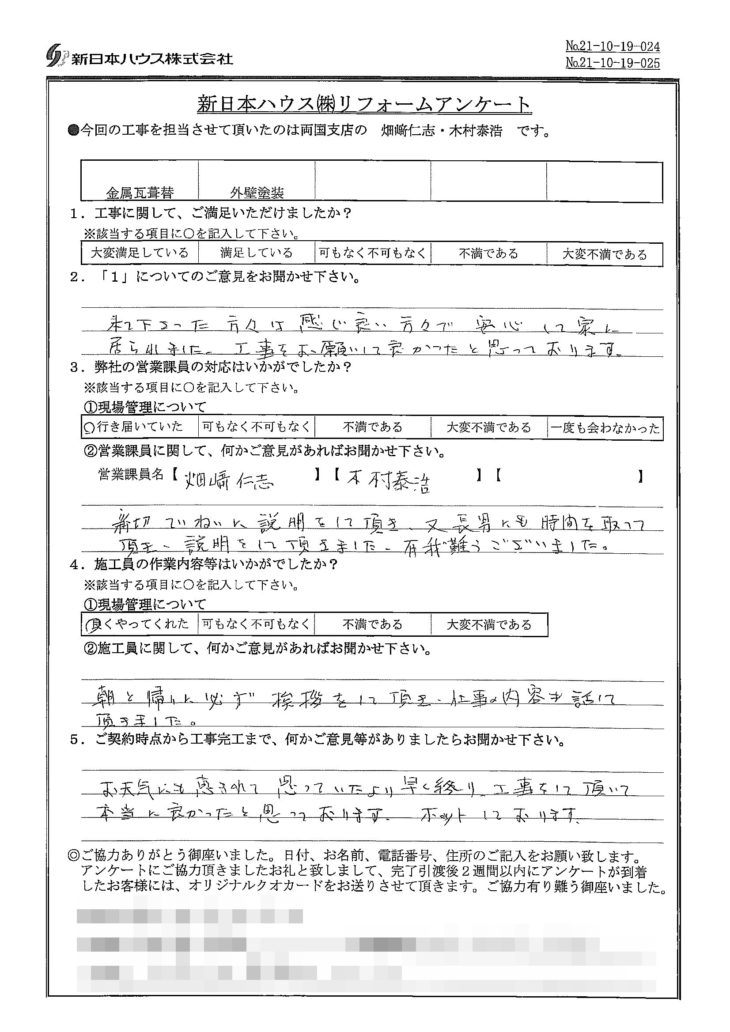 新日本ハウス株式会社
No.21-10-19-024
No.21-10-19-025
新日本ハウス㈱リフォームアンケート
●今回の工事を担当させて頂いたのは両国支店の　畑﨑仁志・木村泰浩　です。
金属瓦葺替　外壁塗装
1．工事に関して、ご満足いただけましたか？
※該当する項目に○を記入して下さい。
大変満足している　満足している　可もなく不可もなく　不満である　大変不満である
2．「1」についてのご意見をお聞かせ下さい。
来て下さった方々は感じ良い方々で安心して家に
居られました。工事をお願いして良かったと思っております。
3．弊社の営業課員の対応はいかがでしたか？
※該当する項目に○を記入して下さい。
①現場管理について
○行き届いていた　可もなく不可もなく　不満である　大変不満である　一度も会わなかった
②営業課員に関して、何かご意見があればお聞かせ下さい。
営業課員名【畑﨑仁志】【木村泰浩】【　】
親切ていねいに説明をして頂き、又長男にも時間を取って
頂き、説明をして頂きました。有我難うございました。
4．施工員の作業内容等はいかがでしたか？
※該当する項目に○を記入して下さい。
①現場管理について
良くやってくれた　可もなく不可もなく　不満である　大変不満である
②施工員に関して、何かご意見があればお聞かせ下さい。
朝と帰りに必ず挨拶をして頂き、仕事の内容も話して
頂きました。
5．ご契約時点から工事完工まで、何かご意見等がありましたらお聞かせ下さい。
お天気にも恵まれて思っていたより早く終り、工事をして頂いて
本当に良かったと思っております。ホットしております。
◎ご協力ありがとう御座いました。日付、お名前、電話番号、住所のご記入をお願い致します。
アンケートにご協力頂きましたお礼と致しまして、完了引渡後2週間以内にアンケートが到着
したお客様には、オリジナルクオカードをお送りさせて頂きます。ご協力有り難う御座いました。